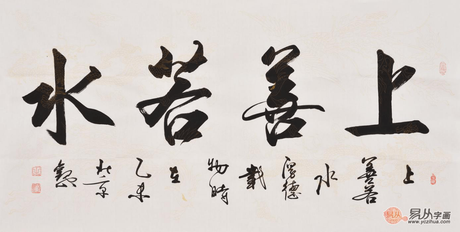 上善若水
上
善若
水
厚德
載
物時
在
乙未
北京
易从字画
www.yozihua.com